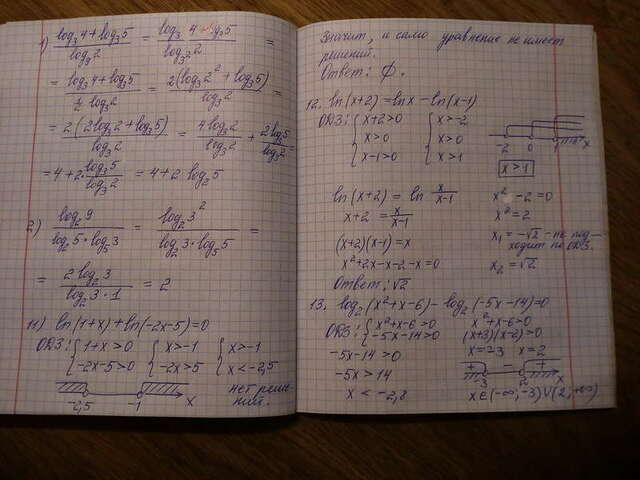 1) (log₃4 + log₃5)/(log₃√2) = (log₃4 + log₃5)/(log₃√2) =
= (log₃4 + log₃5)/(½ log₃2) = 2(log₃2² + log₃5)/(log₃2) =
= 2(2log₃2 + log₃5)/(log₃2) = 4log₃2/log₃2 + 2log₃5/log₃2 =
= 4+2·log₃5/log₃2 = 4+2 log₂5
2) log₂9/(log₂5·log₅3) = log₂3²/(log₂3·log₅5) =
= 2log₂3/(log₂3·1) = 2
11) ln(1+x)+ln(-2x-5)=0
ОДЗ: { 1+x>0 { x>-1 { x>-1
-2x-5>0 -2x>5 x<-2,5
-2,5 -1 x нет реше-
ний.
Значит, и само уравнение не имеет
решений.
Ответ: ∅.
12. ln(x+2)=lnx-ln(x-1)
ОДЗ: { x+2>0 { x>-2
x>0 x>0 -2 0 1 x
x-1>0 x>1 x>1
ln(x+2) = ln x/(x-1) x²-2=0
x+2 = x/(x-1) x²=2
(x+2)(x-1)=x x₁=-√2 - не под-
ходит по ОДЗ.
x²+2x-x-2-x=0 x₂=√2
Ответ: √2
13. log₂(x²+x-6)-log₂(-5x-14)=0
ОДЗ: { x²+x-6>0 x²+x-6>0
-5x-14>0 (x+3)(x-2)>0
-5x-14>0 x=-3 x=2
-5x>14 + - + -3 2
x<-2,8 x∈(-∞;-3)∪(2;+∞)